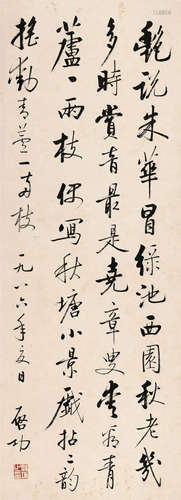 艷說朱華冒綠池西園秋老幾
多時賞音最是堯章叟愛 青
蘆一兩枝 寫秋塘小景戲拈 韻
搖動青蘆一兩枝 一九八六年夏日 啟功